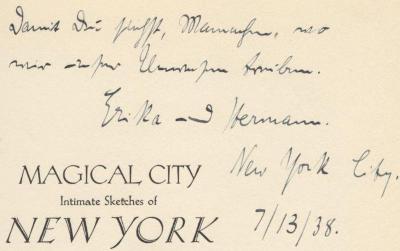 Damit Du siehst, Mamachen, wo
wir unser Unwesen treiben.
Erika und Hermann.
New York City.
7/13/38.
MAGICAL CITY
Intimate Sketches of
NEW YORK